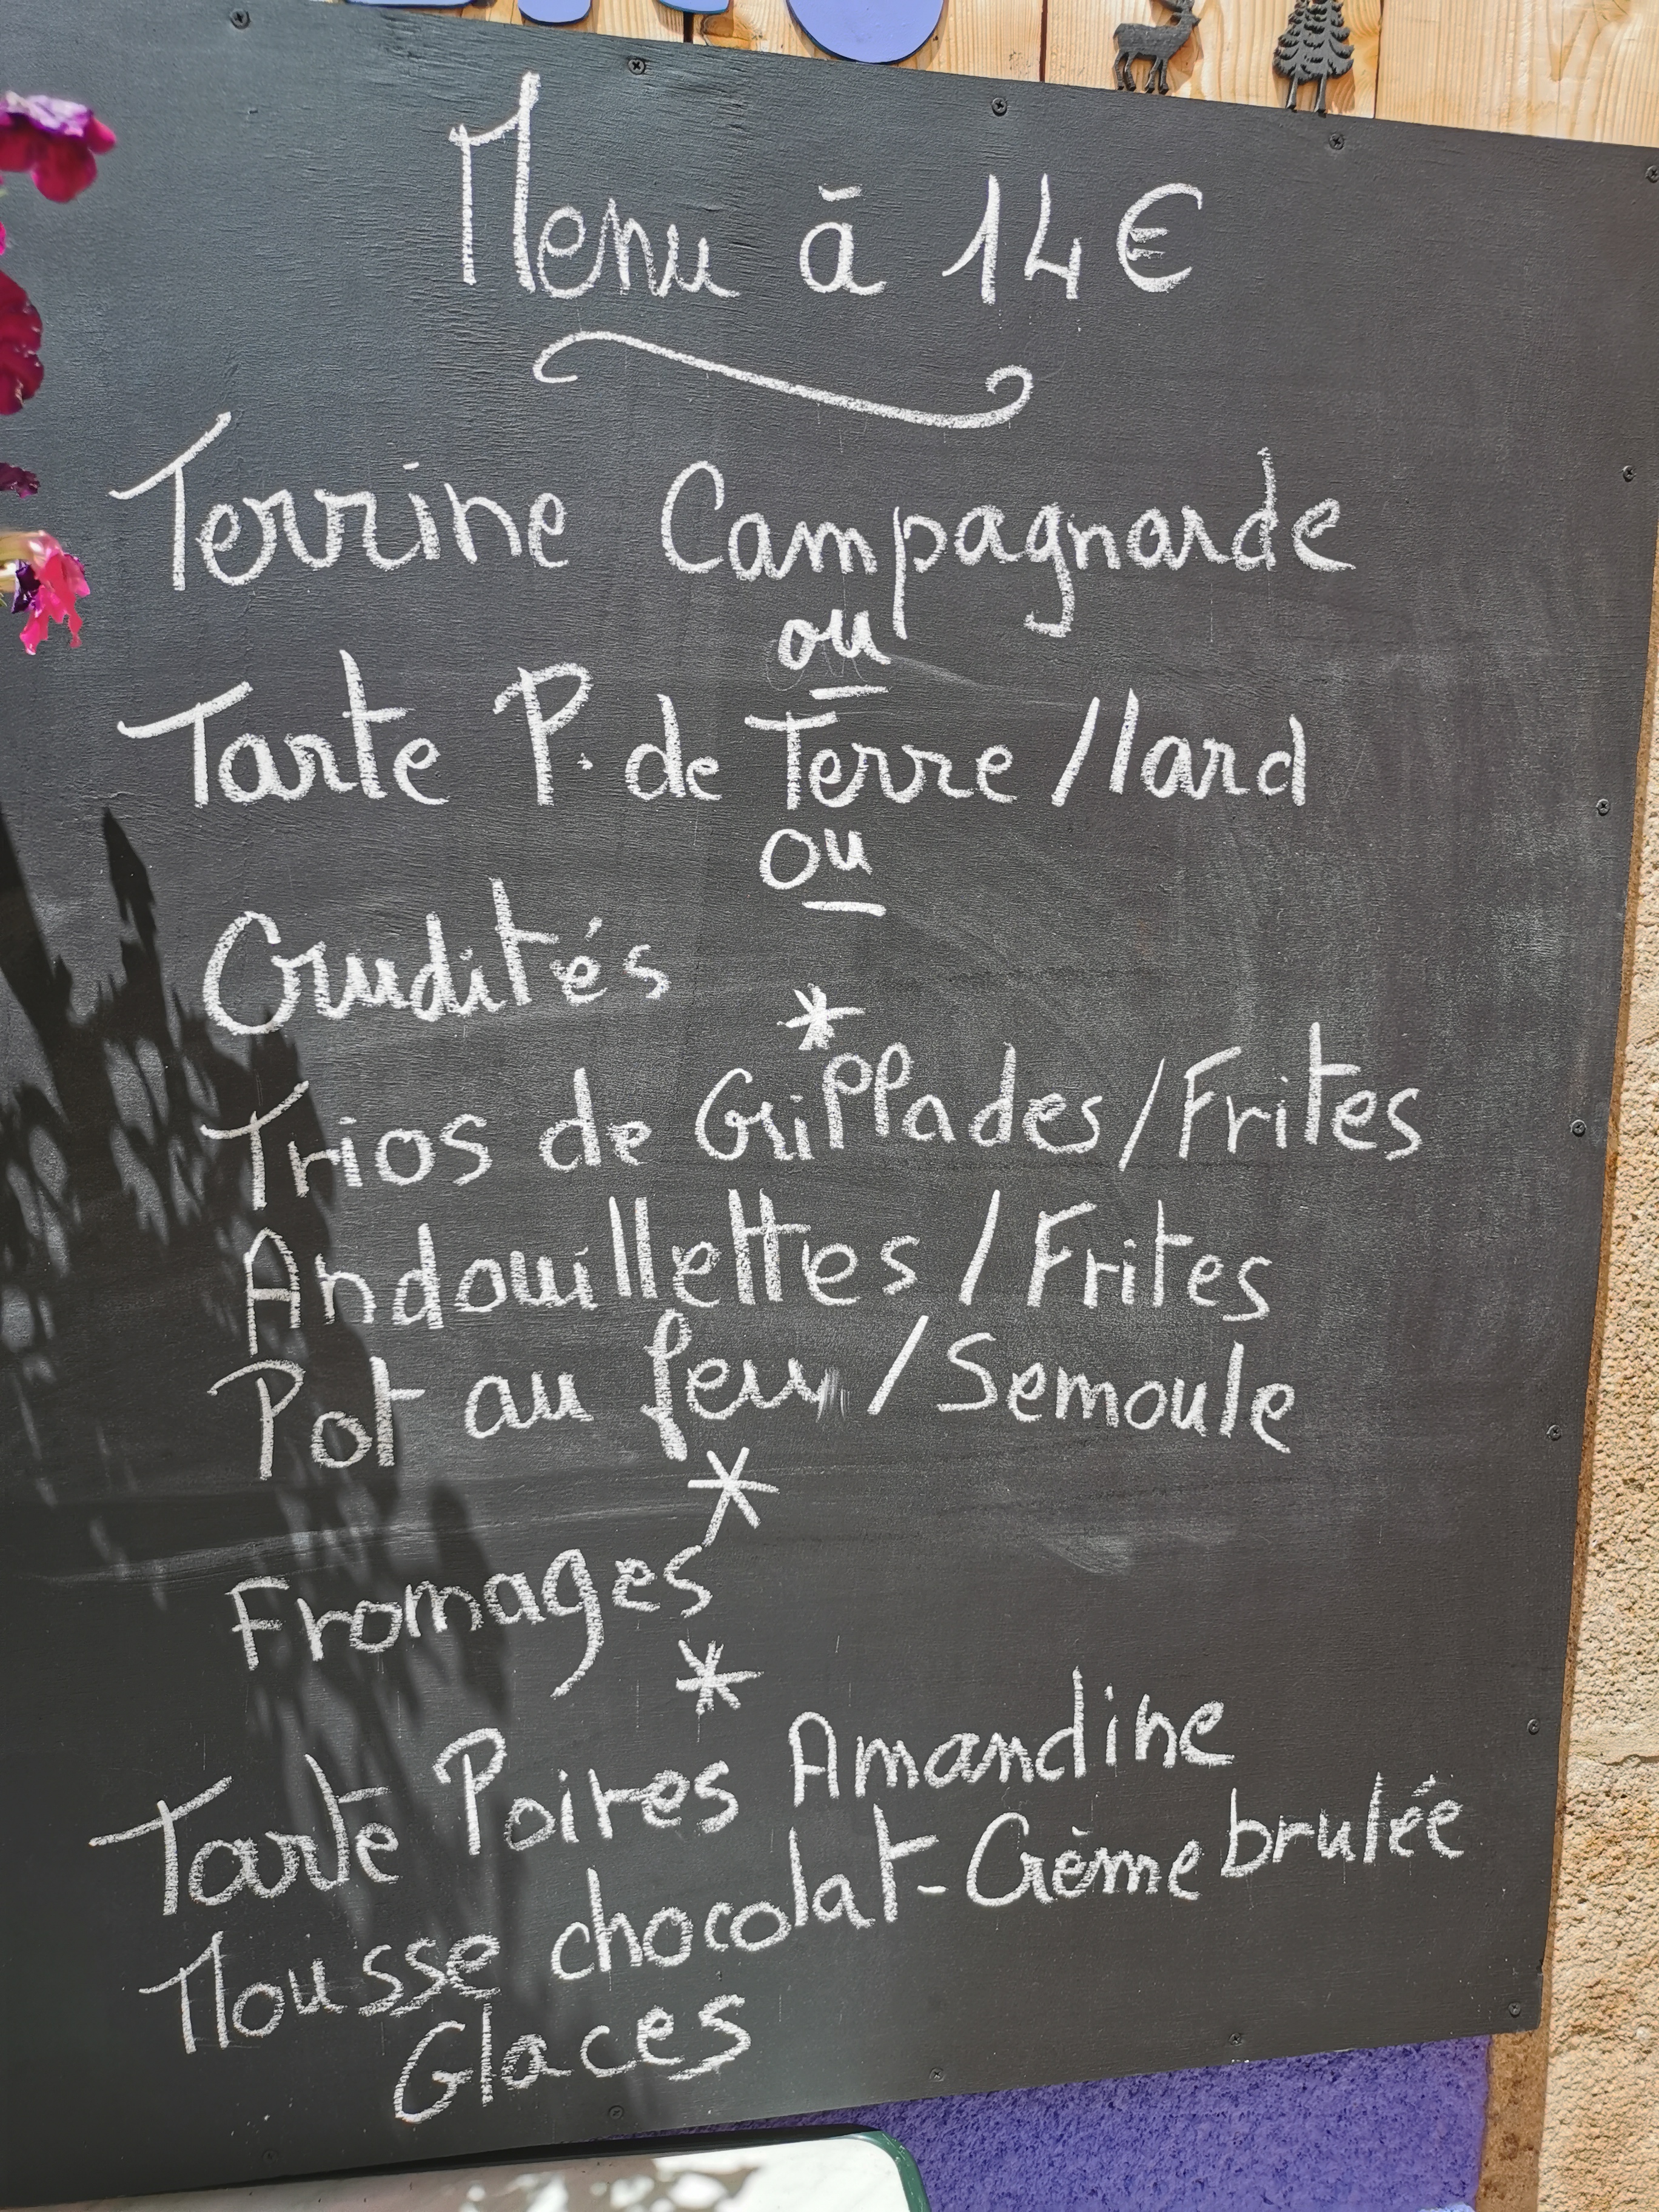 Menu à 14€
Terrine Campagnarde
ou
Tarte P. de Terre / lard
ou
Crudités
*
Trios de Grillades / Frites
Andouillettes / Frites
Pot au feu / Semoule
*
Fromages
*
Tarte Poires Amandine
Mousse chocolat - Crème brulée
Glaces